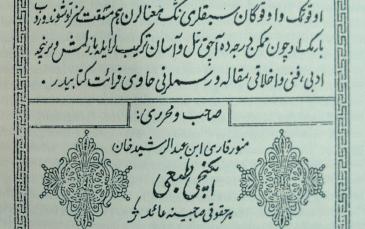 اوقوتمک و اوقوگان سبقلری نگ معنالرن هم
بارینک اوچون ممکن درجه ده آچق تل و آسان ترکیب لر ایله یازلمش و برنچه
ادبی، فنی و اخلاقی مقاله و رسم لرنی حاوی قرائت کتابیدر.
صاحب و محرری:
منور قاری ابن عبدالرشیدخان
ایکنچی طبعی
هر حقوقی صاحبینه عائد در